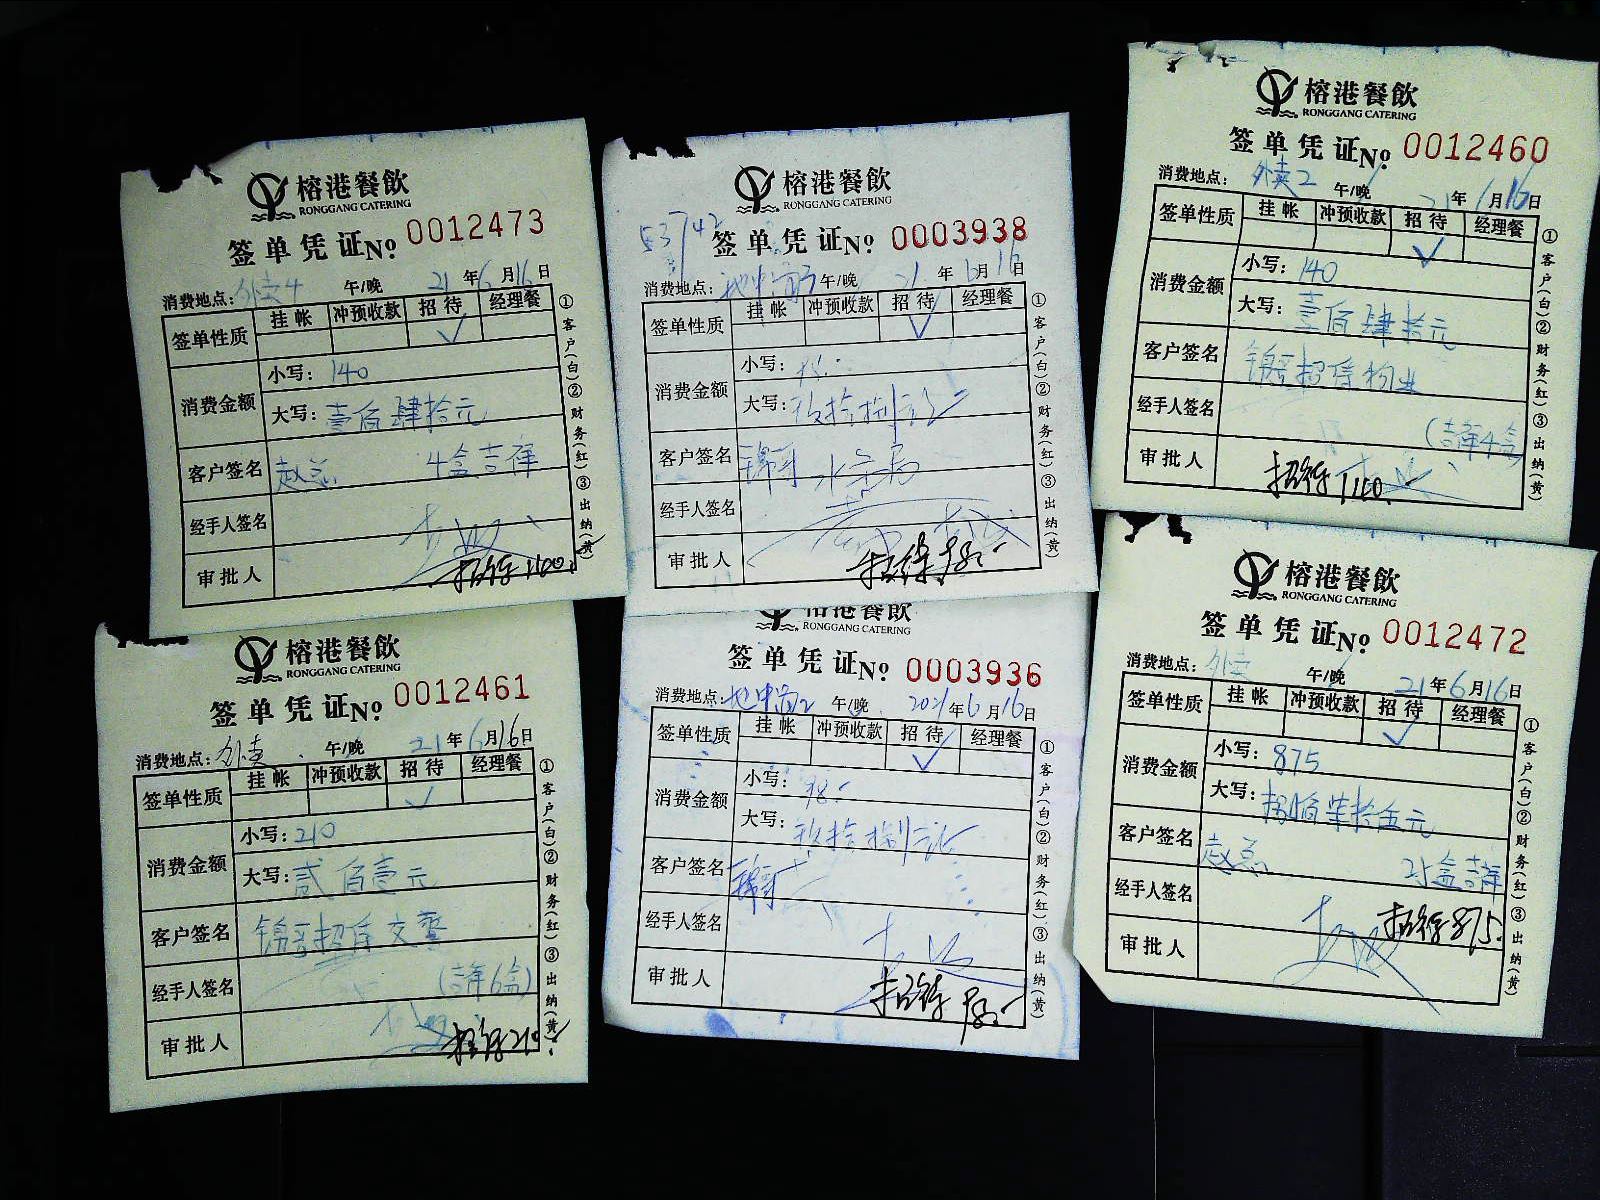 榕港餐飲
RONGGANG CATERING
签单凭证№ 0012473
消费地点：外卖4 午/晚 21年6月16日
签单性质 挂帐 冲预收款 招待 经理餐
✓
消费金额 小写：140
大写：壹佰肆拾元
客户签名 赵总 4盒吉祥
经手人签名
审批人 招待140.
①客户(白)②财务(红)③出纳(黄)
榕港餐飲
RONGGANG CATERING
53742
签单凭证№ 0003938
消费地点：地中海3 午/晚 21年6月16日
签单性质 挂帐 冲预收款 招待 经理餐
✓
消费金额 小写：98.-
大写：玖拾捌元正
客户签名 锦哥
经手人签名
审批人 招待98.-
①客户(白)②财务(红)③出纳(黄)
榕港餐飲
RONGGANG CATERING
签单凭证№ 0012460
消费地点：外卖2 午/晚 21年6月16日
签单性质 挂帐 冲预收款 招待 经理餐
✓
消费金额 小写：140
大写：壹佰肆拾元
客户签名 锦哥招待物业
经手人签名
(吉祥4盒)
审批人 招待140.
①客户(白)②财务(红)③出纳(黄)
榕港餐飲
RONGGANG CATERING
签单凭证№ 0012461
消费地点：外卖 午/晚 21年6月16日
签单性质 挂帐 冲预收款 招待 经理餐
✓
消费金额 小写：210
大写：贰佰壹元
客户签名 锦哥招待交警
经手人签名 (吉祥6盒)
审批人 招待210.
①客户(白)②财务(红)③出纳(黄)
榕港餐飲
RONGGANG CATERING
签单凭证№ 0003936
消费地点：地中海2 午/晚 2021年6月16日
签单性质 挂帐 冲预收款 招待 经理餐
✓
消费金额 小写：98.-
大写：玖拾捌元正
客户签名 锦哥
经手人签名
审批人 招待98.-
①客户(白)②财务(红)③出纳(黄)
榕港餐飲
RONGGANG CATERING
签单凭证№ 0012472
消费地点：外卖 午/晚 21年6月16日
签单性质 挂帐 冲预收款 招待 经理餐
✓
消费金额 小写：875
大写：捌佰柒拾伍元
客户签名 赵总 25盒吉祥
经手人签名
审批人 招待875.
①客户(白)②财务(红)③出纳(黄)